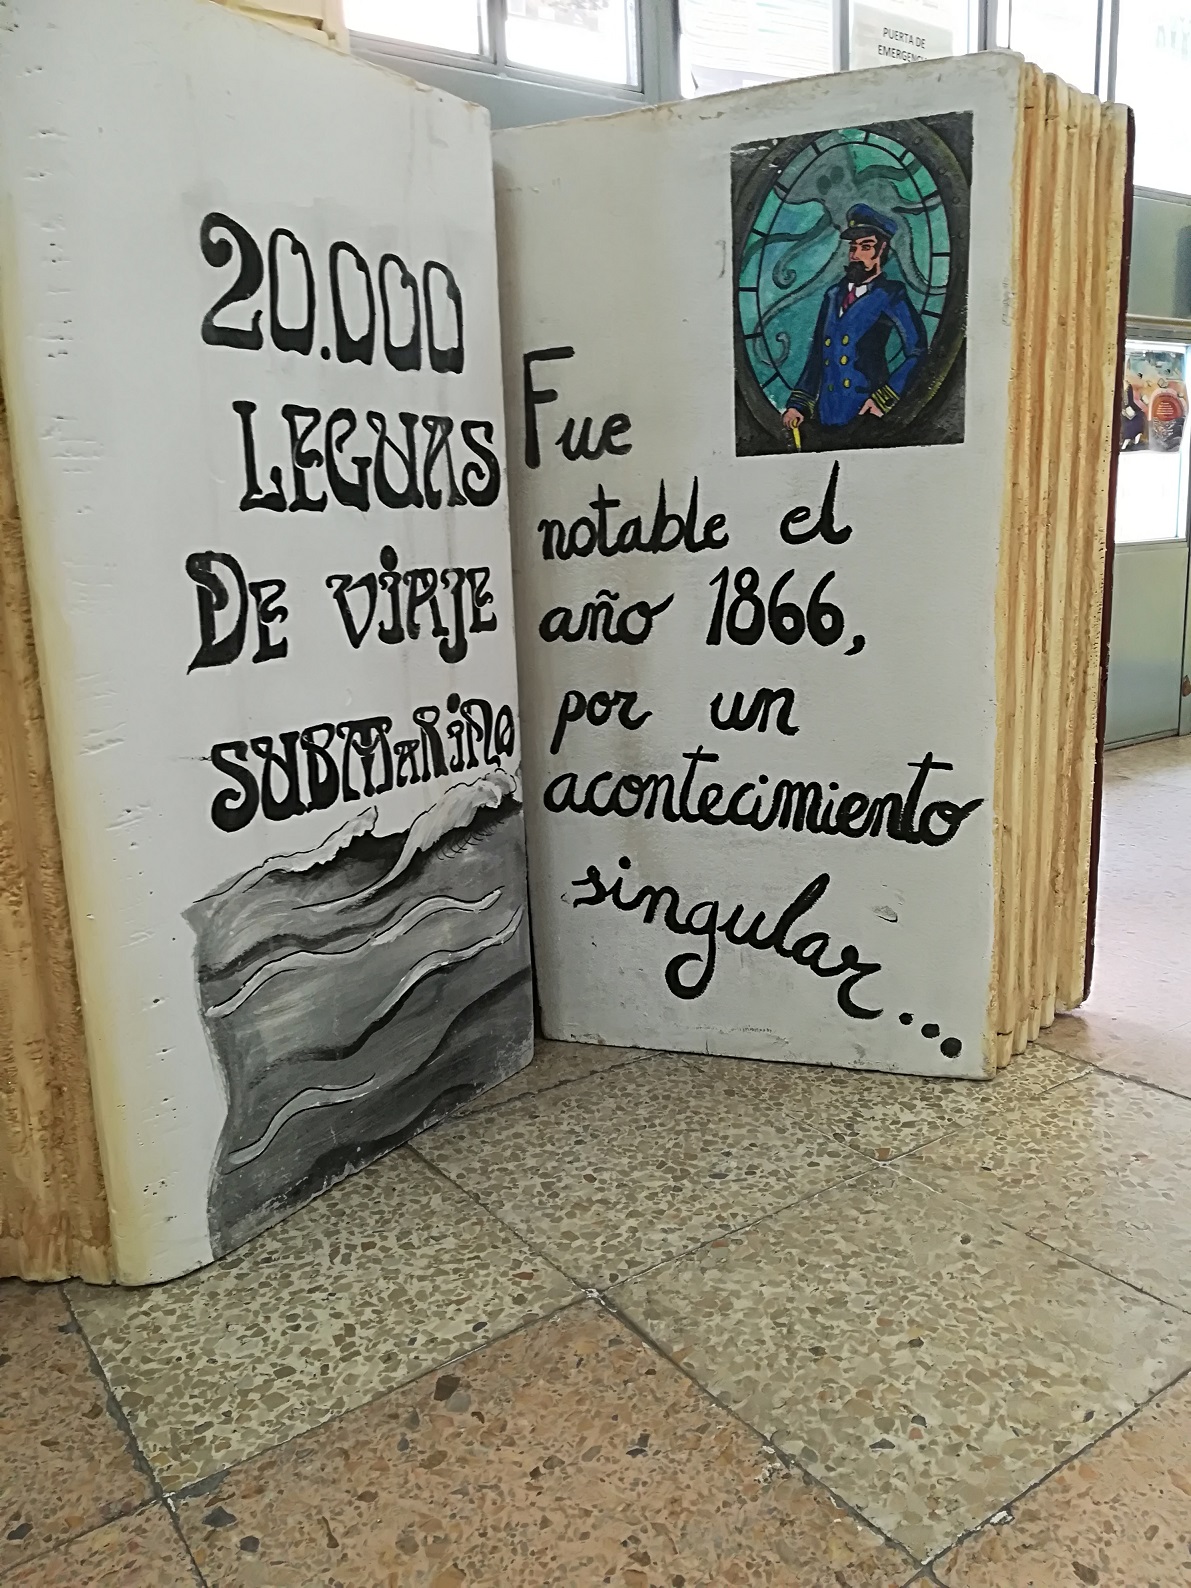 20.000
LEGUAS
DE VIAJE
SUBMARINO
Fue
notable el
año 1866,
por un
acontecimiento
singular...
PUERTA DE